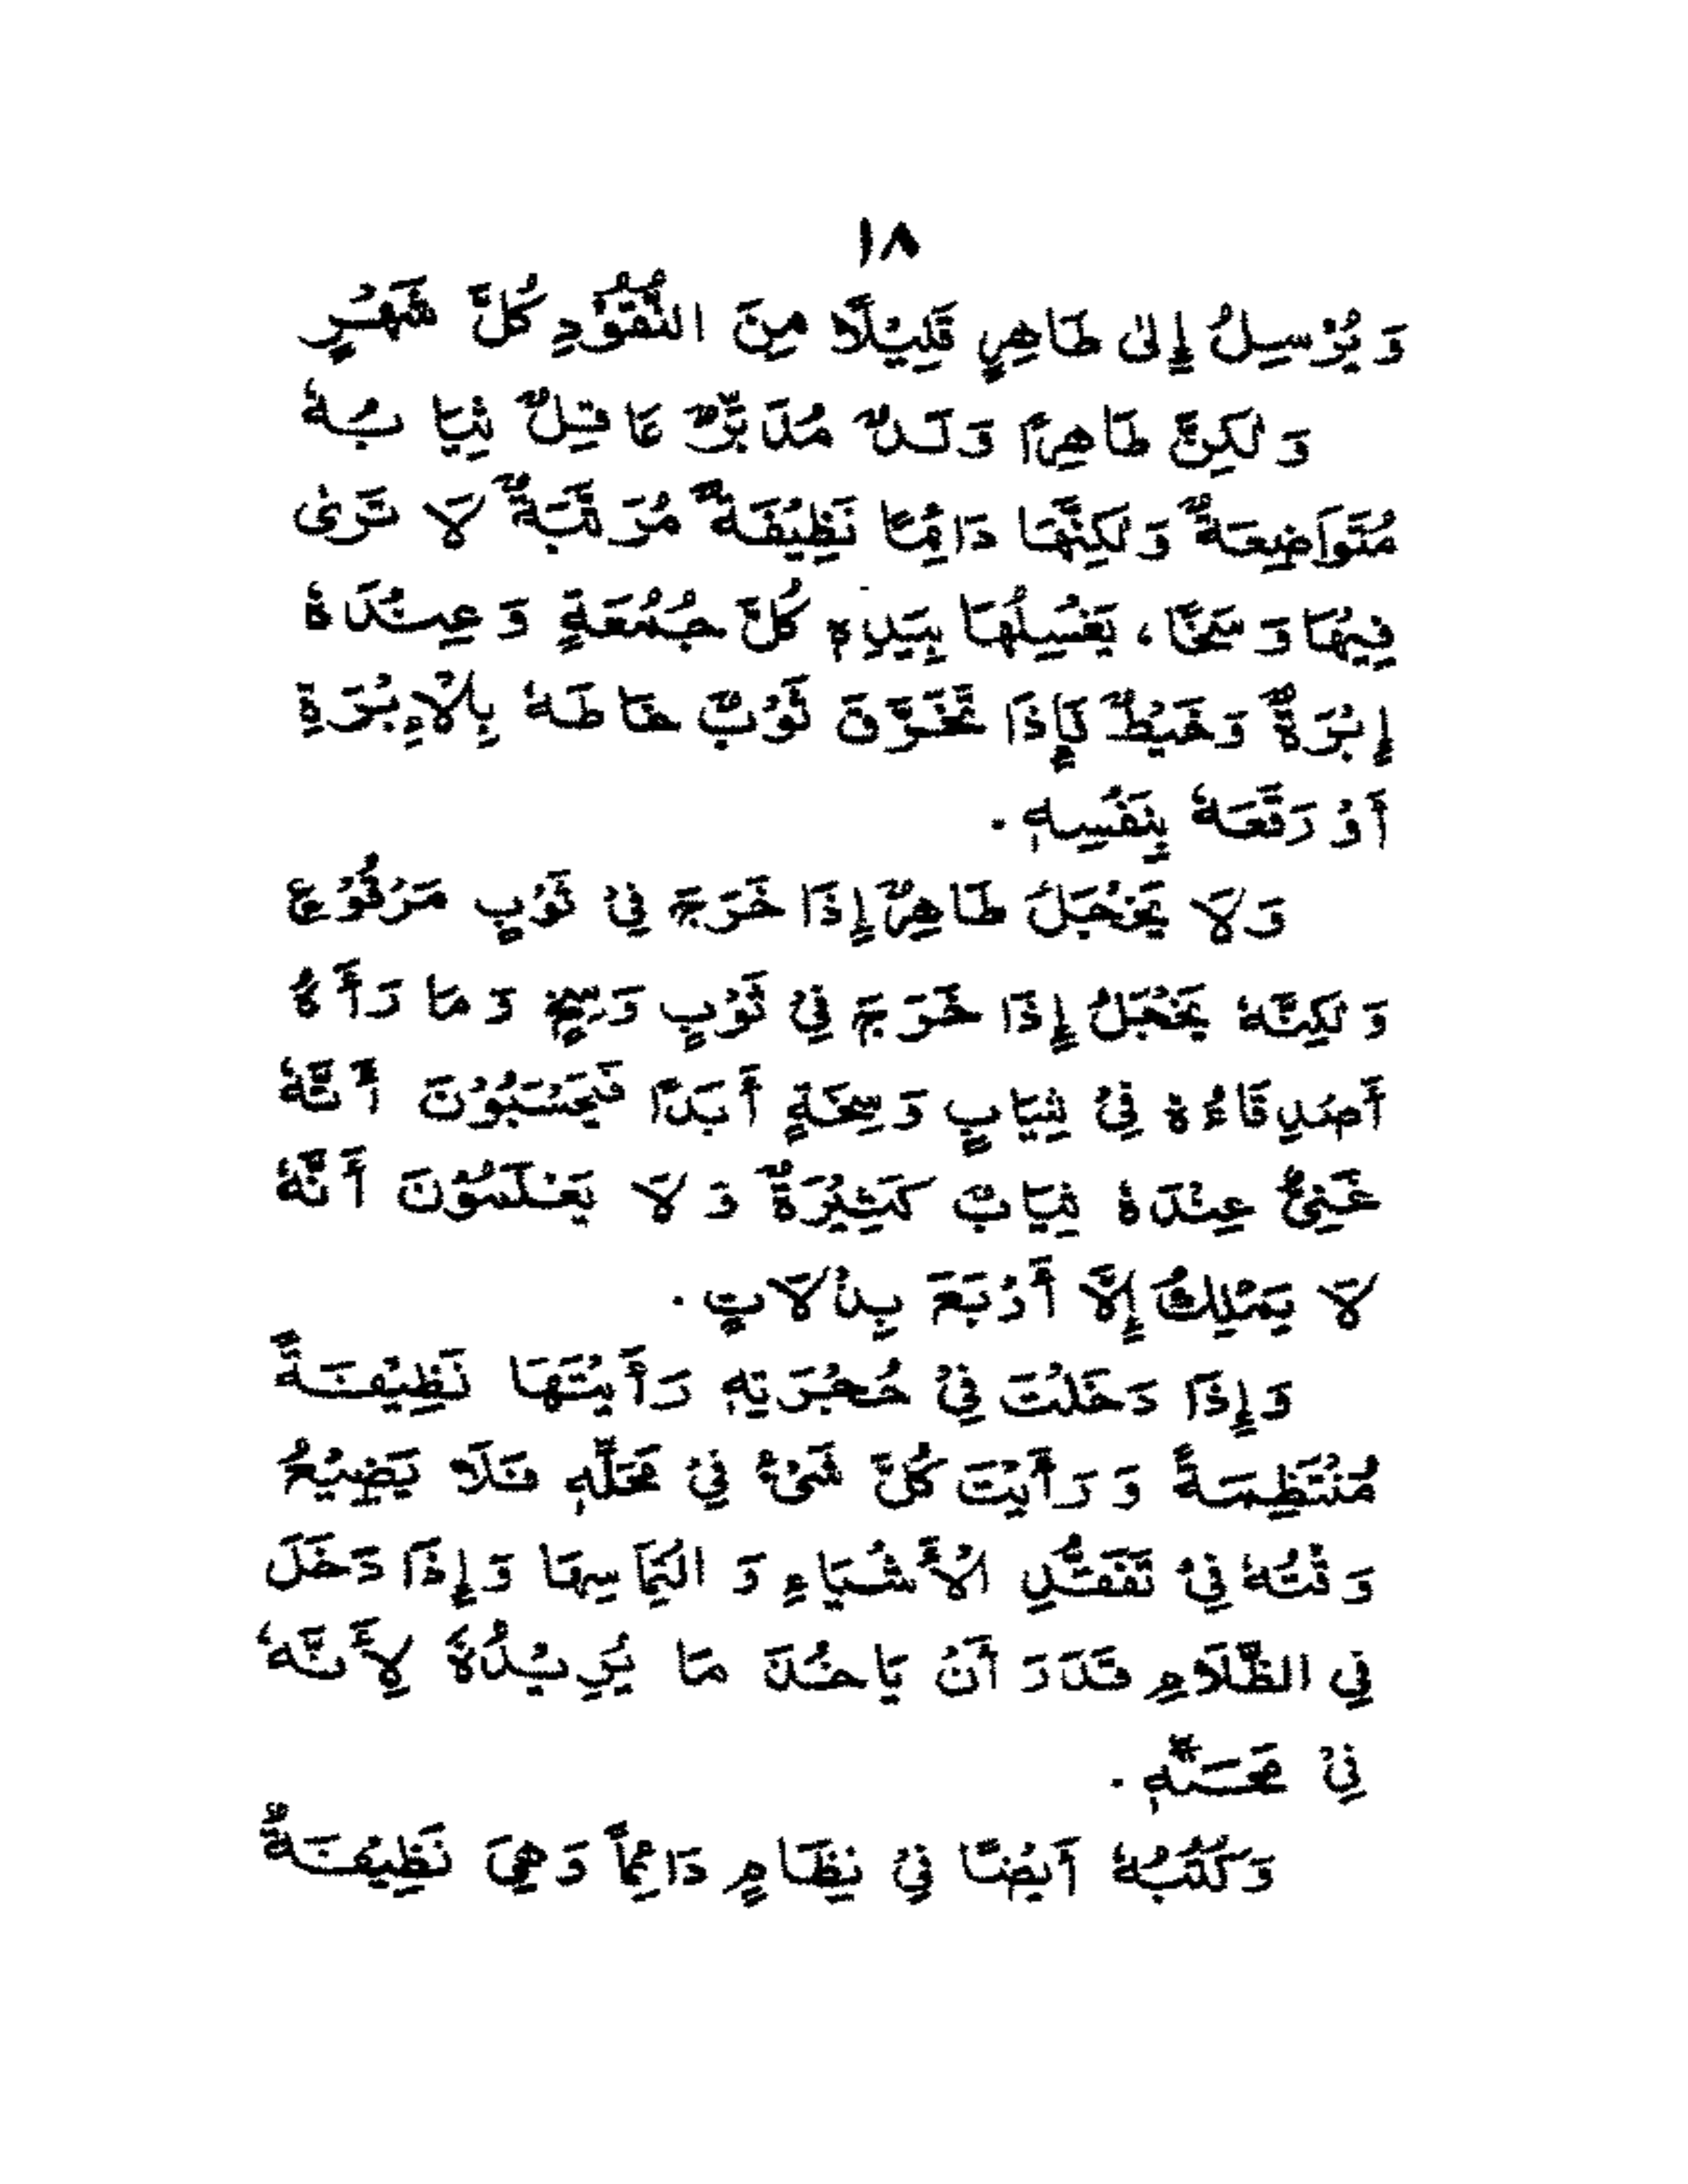 ١٨
وَيُرْسِلُ إِلىٰ طَاهِرٍ قَلِيْلًا مِنَ النُّقُوْدِ كُلَّ شَهْرٍ
وَلٰكِنَّ طَاهِرًا وَلَدٌ مُدَبِّرٌ عَاقِلٌ ثِيَابُهٗ
مُتَوَاضِعَةٌ وَلٰكِنَّهَا دَائِمًا نَظِيْفَةٌ مُرَتَّبَةٌ لَا تَرىٰ
فِيْهَا وَسَخًا، يَغْسِلُهَا بِيَدِهٖ كُلَّ جُمُعَةٍ وَعِنْدَهٗ
إِبْرَةٌ وَخَيْطٌ فَإِذَا تَخَرَّقَ ثَوْبٌ خَاطَهٗ بِالْإِبْرَةِ
أَوْ رَقَّعَهٗ بِنَفْسِهٖ.
وَلَا يَخْجَلُ طَاهِرٌ إِذَا خَرَجَ فِيْ ثَوْبٍ مَرْقُوْعٍ
وَلٰكِنَّهٗ يَخْجَلُ إِذَا خَرَجَ فِيْ ثَوْبٍ وَسِخٍ وَمَا رَأَهُ
أَصْدِقَاءُهٗ فِيْ ثِيَابٍ وَسِخَةٍ أَبَدًا فَيَحْسَبُوْنَ أَنَّهٗ
غَنِيٌّ عِنْدَهٗ ثِيَابٌ كَثِيْرَةٌ وَلَا يَعْلَمُوْنَ أَنَّهٗ
لَا يَمْلِكُ إِلَّا أَرْبَعَ بِذْلَاتٍ.
وَإِذَا دَخَلْتَ فِيْ حُجْرَتِهٖ رَأَيْتَهَا نَظِيْفَةً
مُنْتَظِمَةً وَرَأَيْتَ كُلَّ شَيْءٍ فِيْ مَحَلِّهٖ فَلَا يَضِيْعُ
وَقْتُهٗ فِيْ تَفَقُّدِ الْأَشْيَاءِ وَ الْتِمَاسِهَا وَإِذَا دَخَلَ
فِي الظَّلَامِ قَدَرَ أَنْ يَاخُذَ مَا يُرِيْدُهٗ لِأَنَّهٗ
فِيْ مَحَلِّهٖ.
وَكُتُبُهٗ أَيْضًا فِيْ نِظَامٍ دَائِماً وَهِيَ نَظِيْفَةٌ